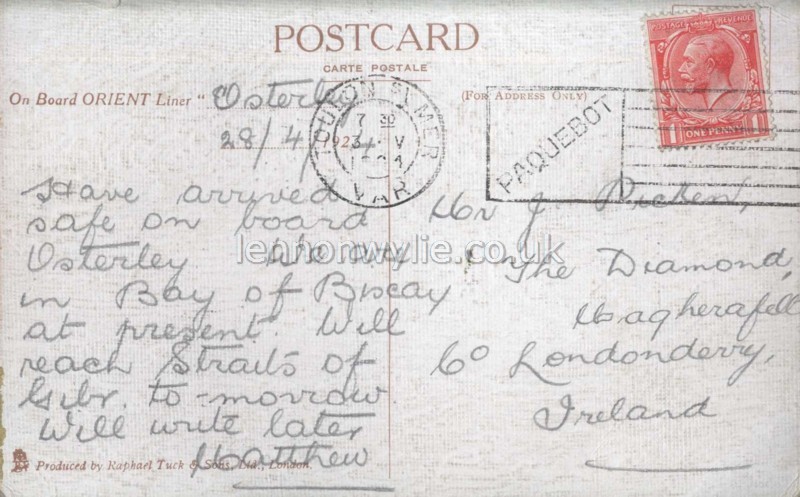 POSTCARD
CARTE POSTALE
On Board ORIENT Liner "Osterley
(For Address Only)
28/4/1924
TOULON S/MER
7 30
3 V
VAR
PAQUEBOT
POSTAGE REVENUE
ONE PENNY
Have arrived
safe on board
Osterley We are
in Bay of Biscay
at present. Will
reach Straits of
Gibr. to-morrow
Will write later
Matthew
Mr J. Picken,
The Diamond,
Magherafelt
Co Londonderry,
Ireland
lennonwylie.co.uk
Produced by Raphael Tuck & Sons, Ltd., London.